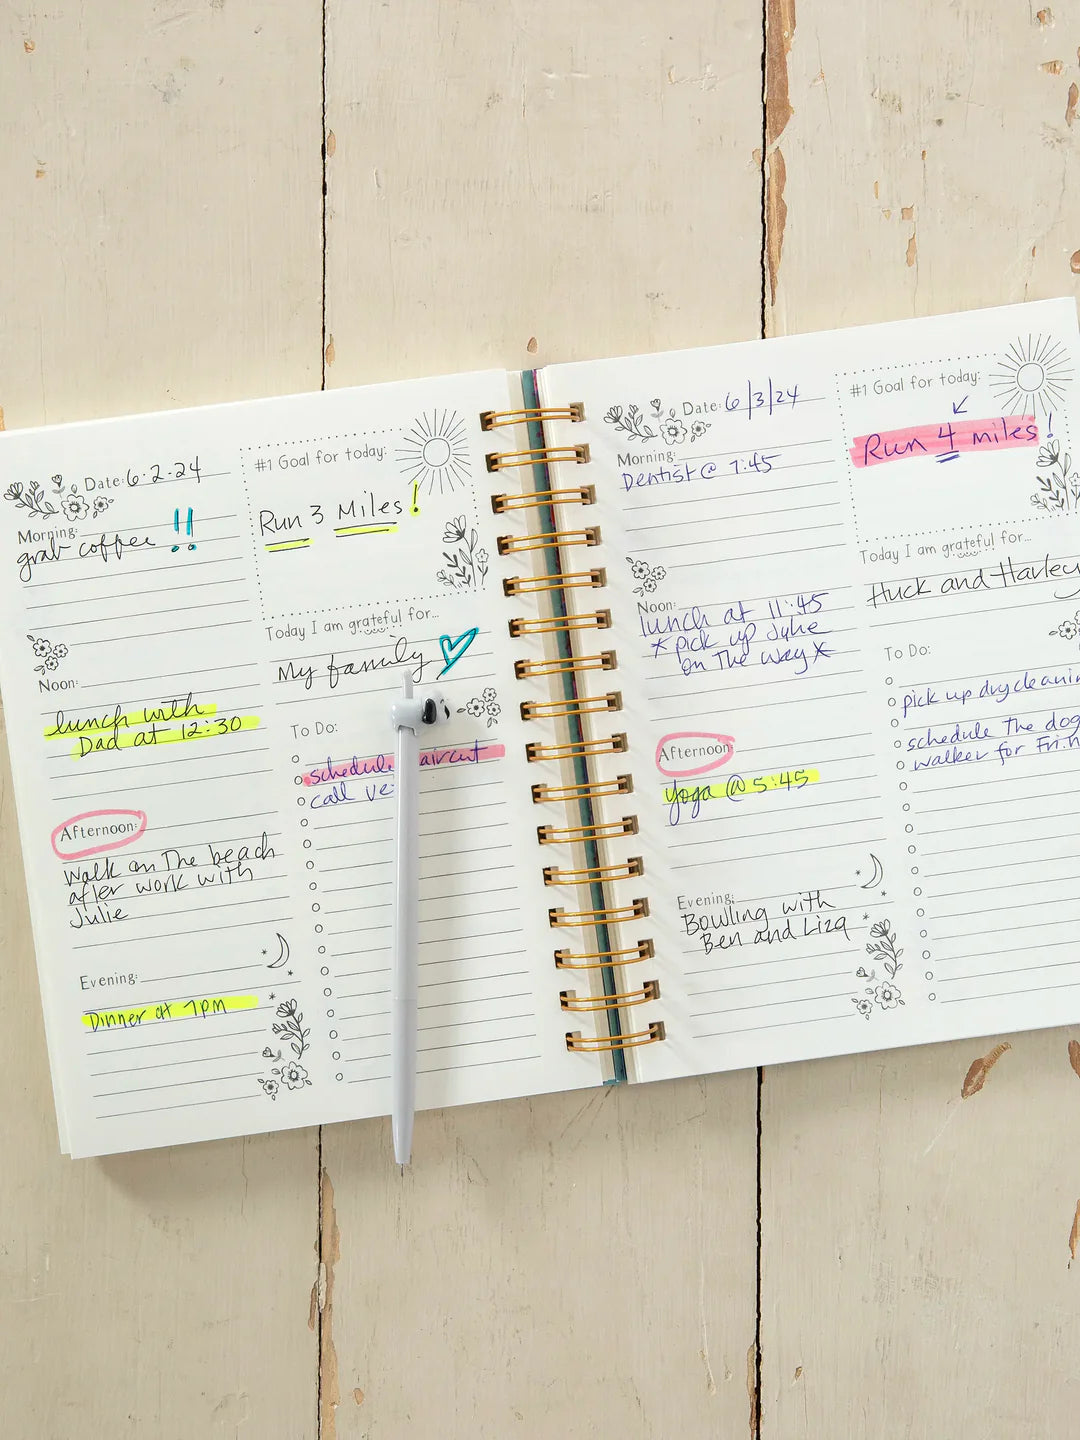 Date: 6-2-24
Morning:
grab coffee !!
Noon:
lunch with
Dad at 12:30
Afternoon:
Walk on The beach
after work with
Julie
Evening:
Dinner at 7pm
#1 Goal for today:
Run 3 Miles!
Today I am grateful for...
My family
To Do:
schedule aircut
call ve
Date: 6/3/24
Morning:
Dentist @ 7:45
Noon:
lunch at 11:45
*pick up Julie
on The way*
Afternoon:
Yoga @ 5:45
Evening:
Bowling with
Ben and Liza
#1 Goal for today:
Run 4 miles!
Today I am grateful for...
Huck and Harley
To Do:
pick up drycleanin
schedule The dog
walker for Fri.